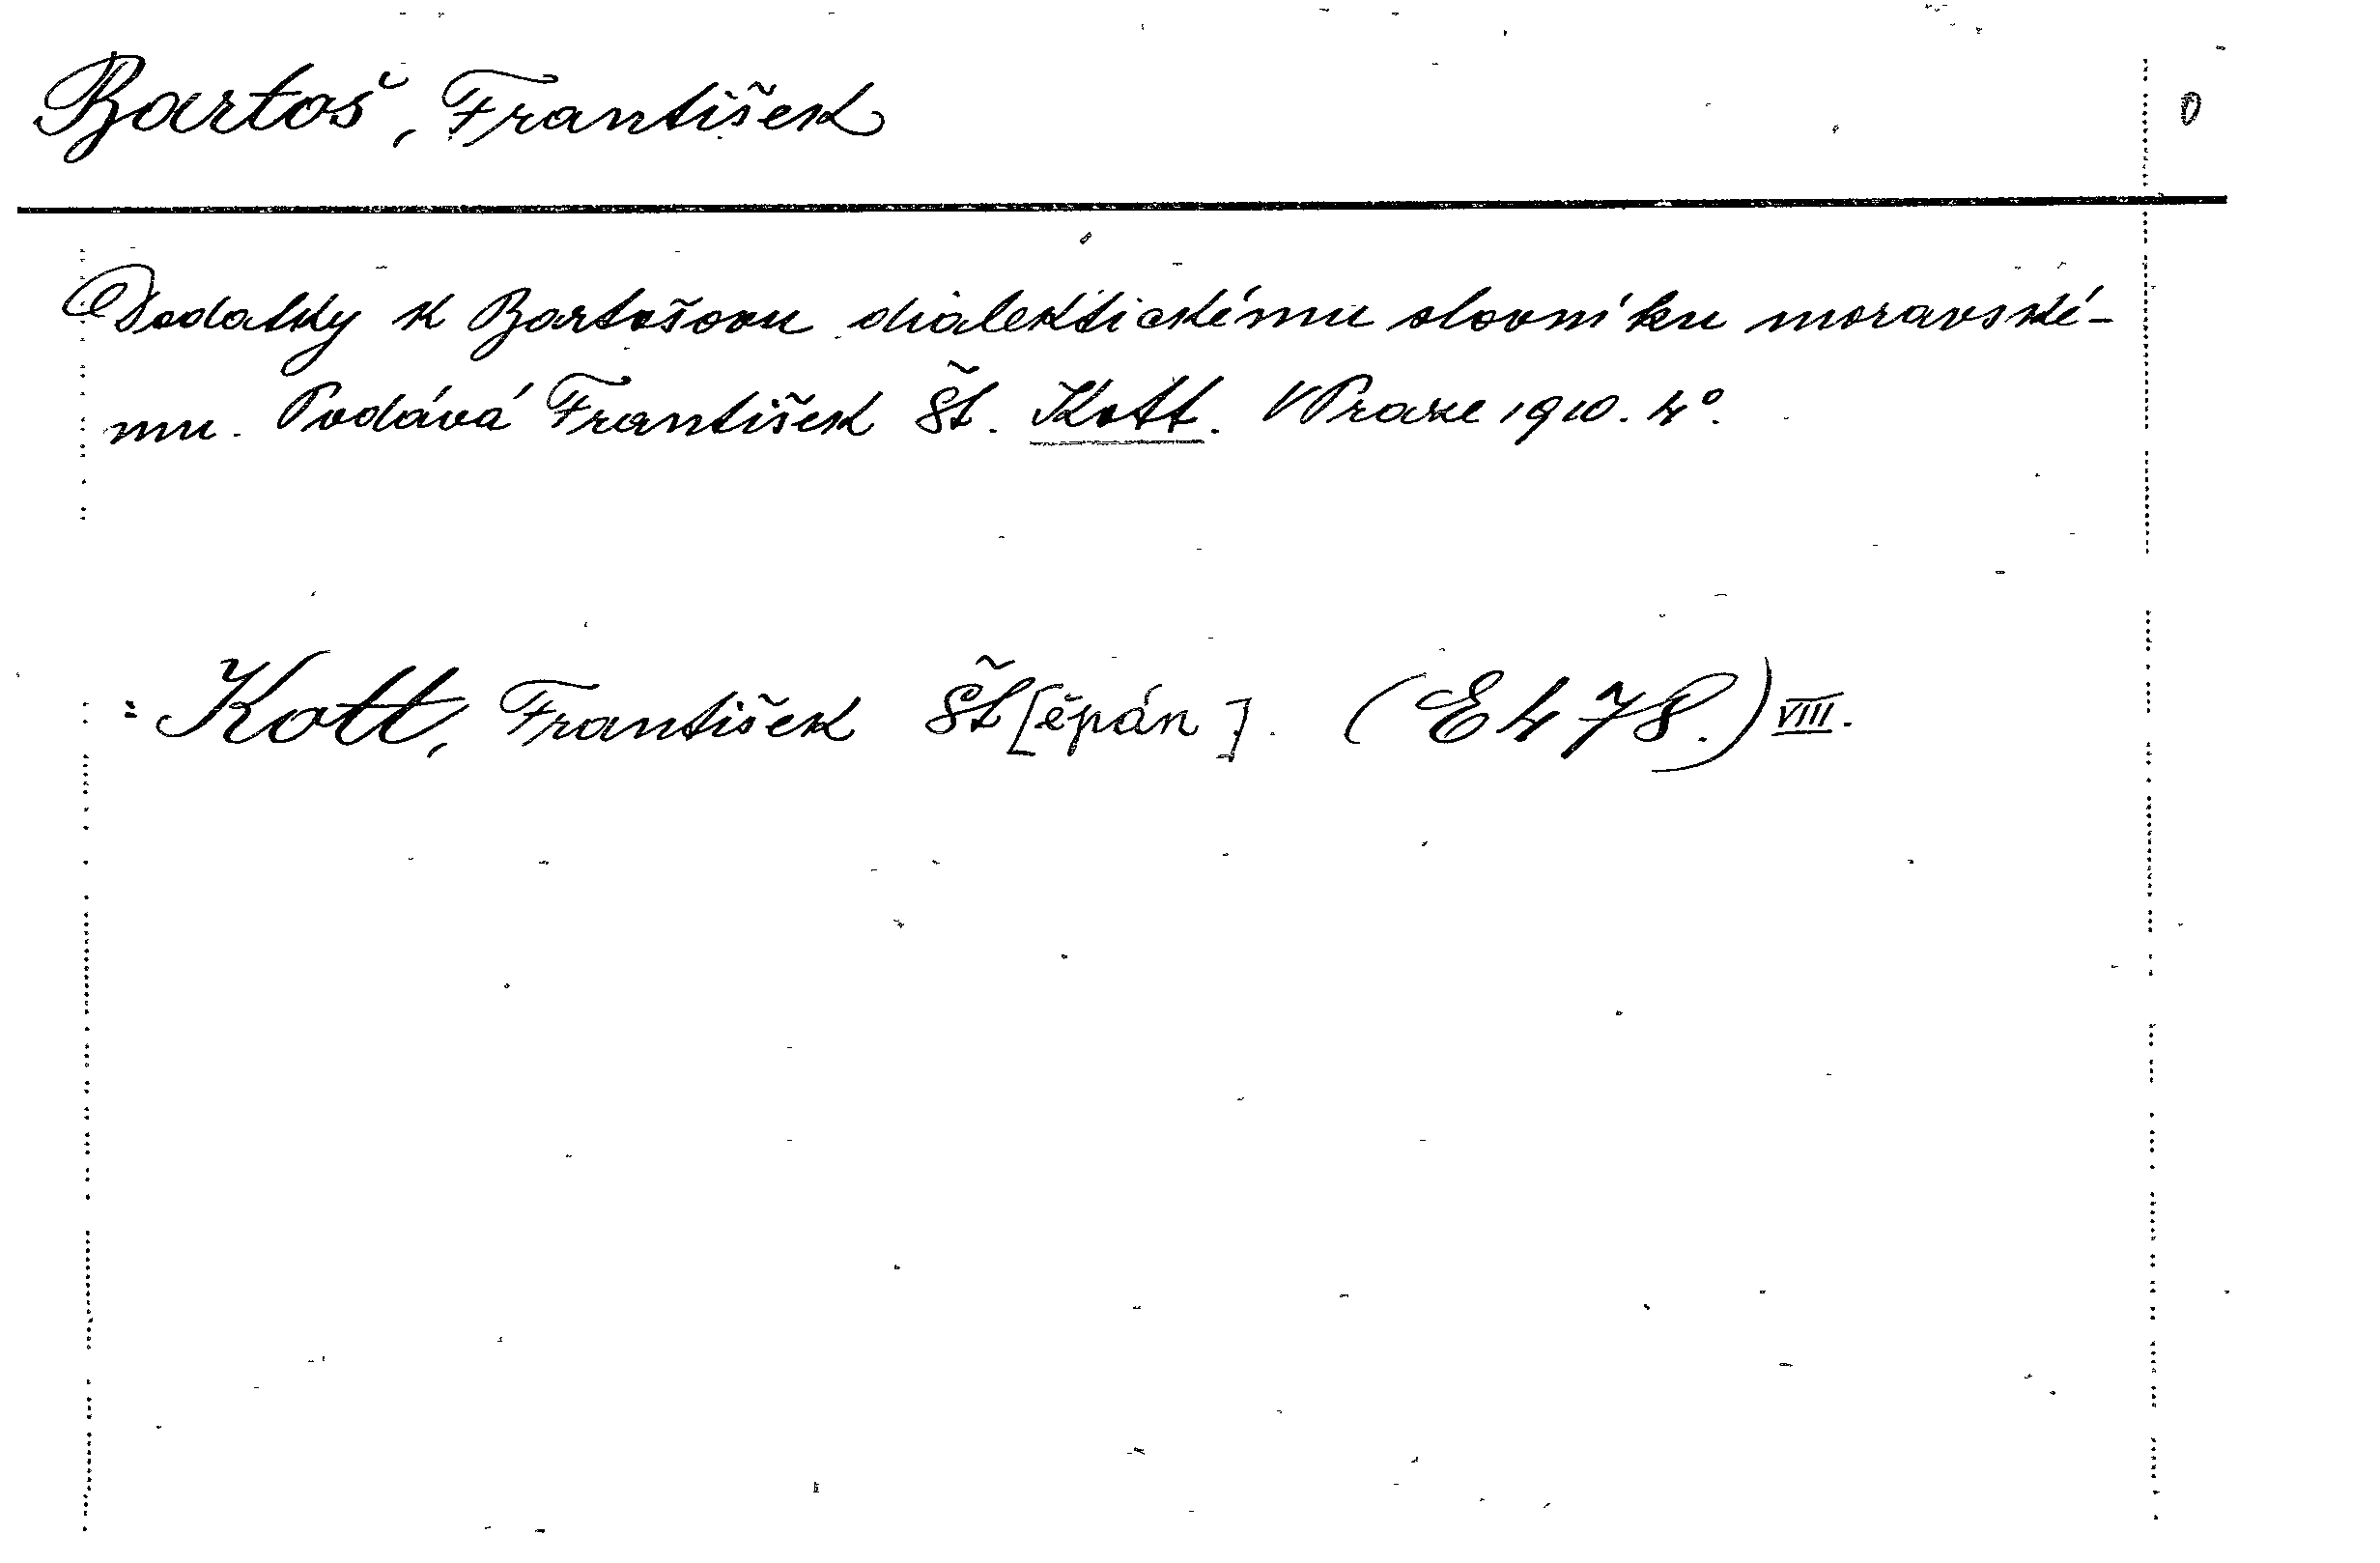 Bartoš, František
Dodatky k Bartošovu dialektickému slovníku moravské-
mu. Podává František Št. Kott. V Praze 1910. 4°.
: Kott, František Št[ěpán]. (E 478.) VIII.